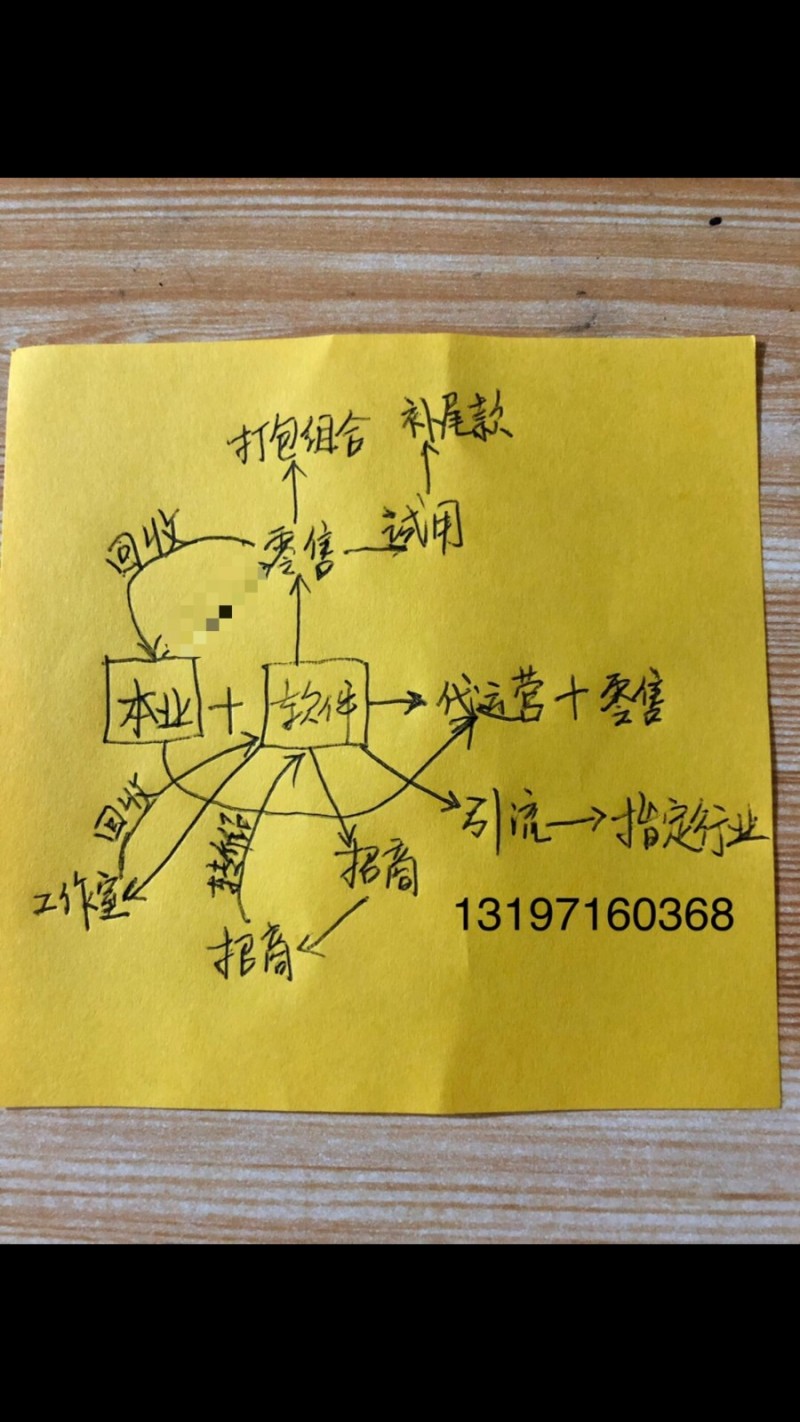 打包组合
补尾款
回收
零售
试用
本业 + 软件
代运营 + 零售
回收
转介绍
招商
引流
指定行业
工作室
招商
13197160368